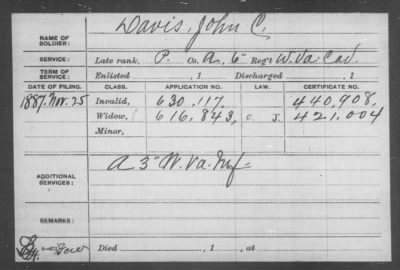 NAME OF SOLDIER: Davis, John C.
SERVICE: Late rank, P. Co. A, 6" Reg't W. Va. Cav.
TERM OF SERVICE: Enlisted , 1 Discharged , 1
DATE OF FILING. CLASS. APPLICATION NO. LAW. CERTIFICATE NO.
1887. Nov. 25 Invalid, 630,117. 440,908.
Widow, 616,843, J. 421,004
Minor,
ADDITIONAL SERVICES: A 3" W. Va. Inf.
REMARKS:
Died , 1 , at